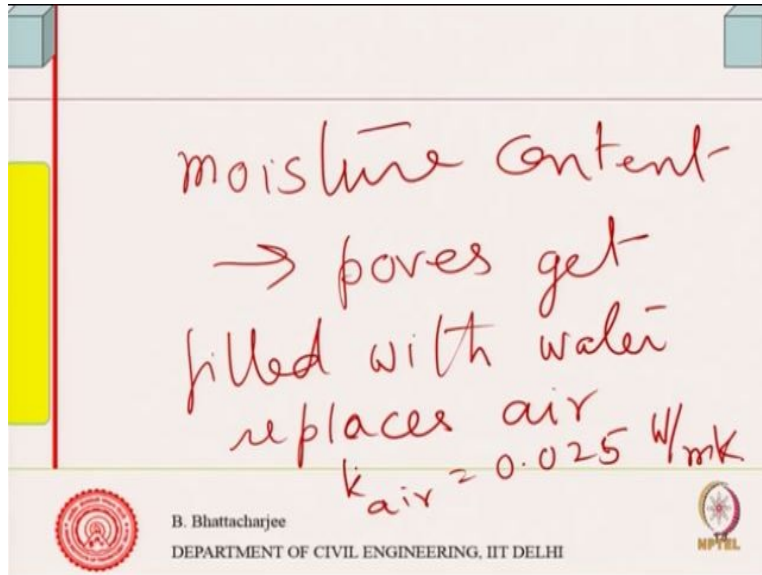 moisture content
→ pores get
filled with water
replaces air
k air = 0.025 W/mK
B. Bhattacharjee
DEPARTMENT OF CIVIL ENGINEERING, IIT DELHI
NPTEL